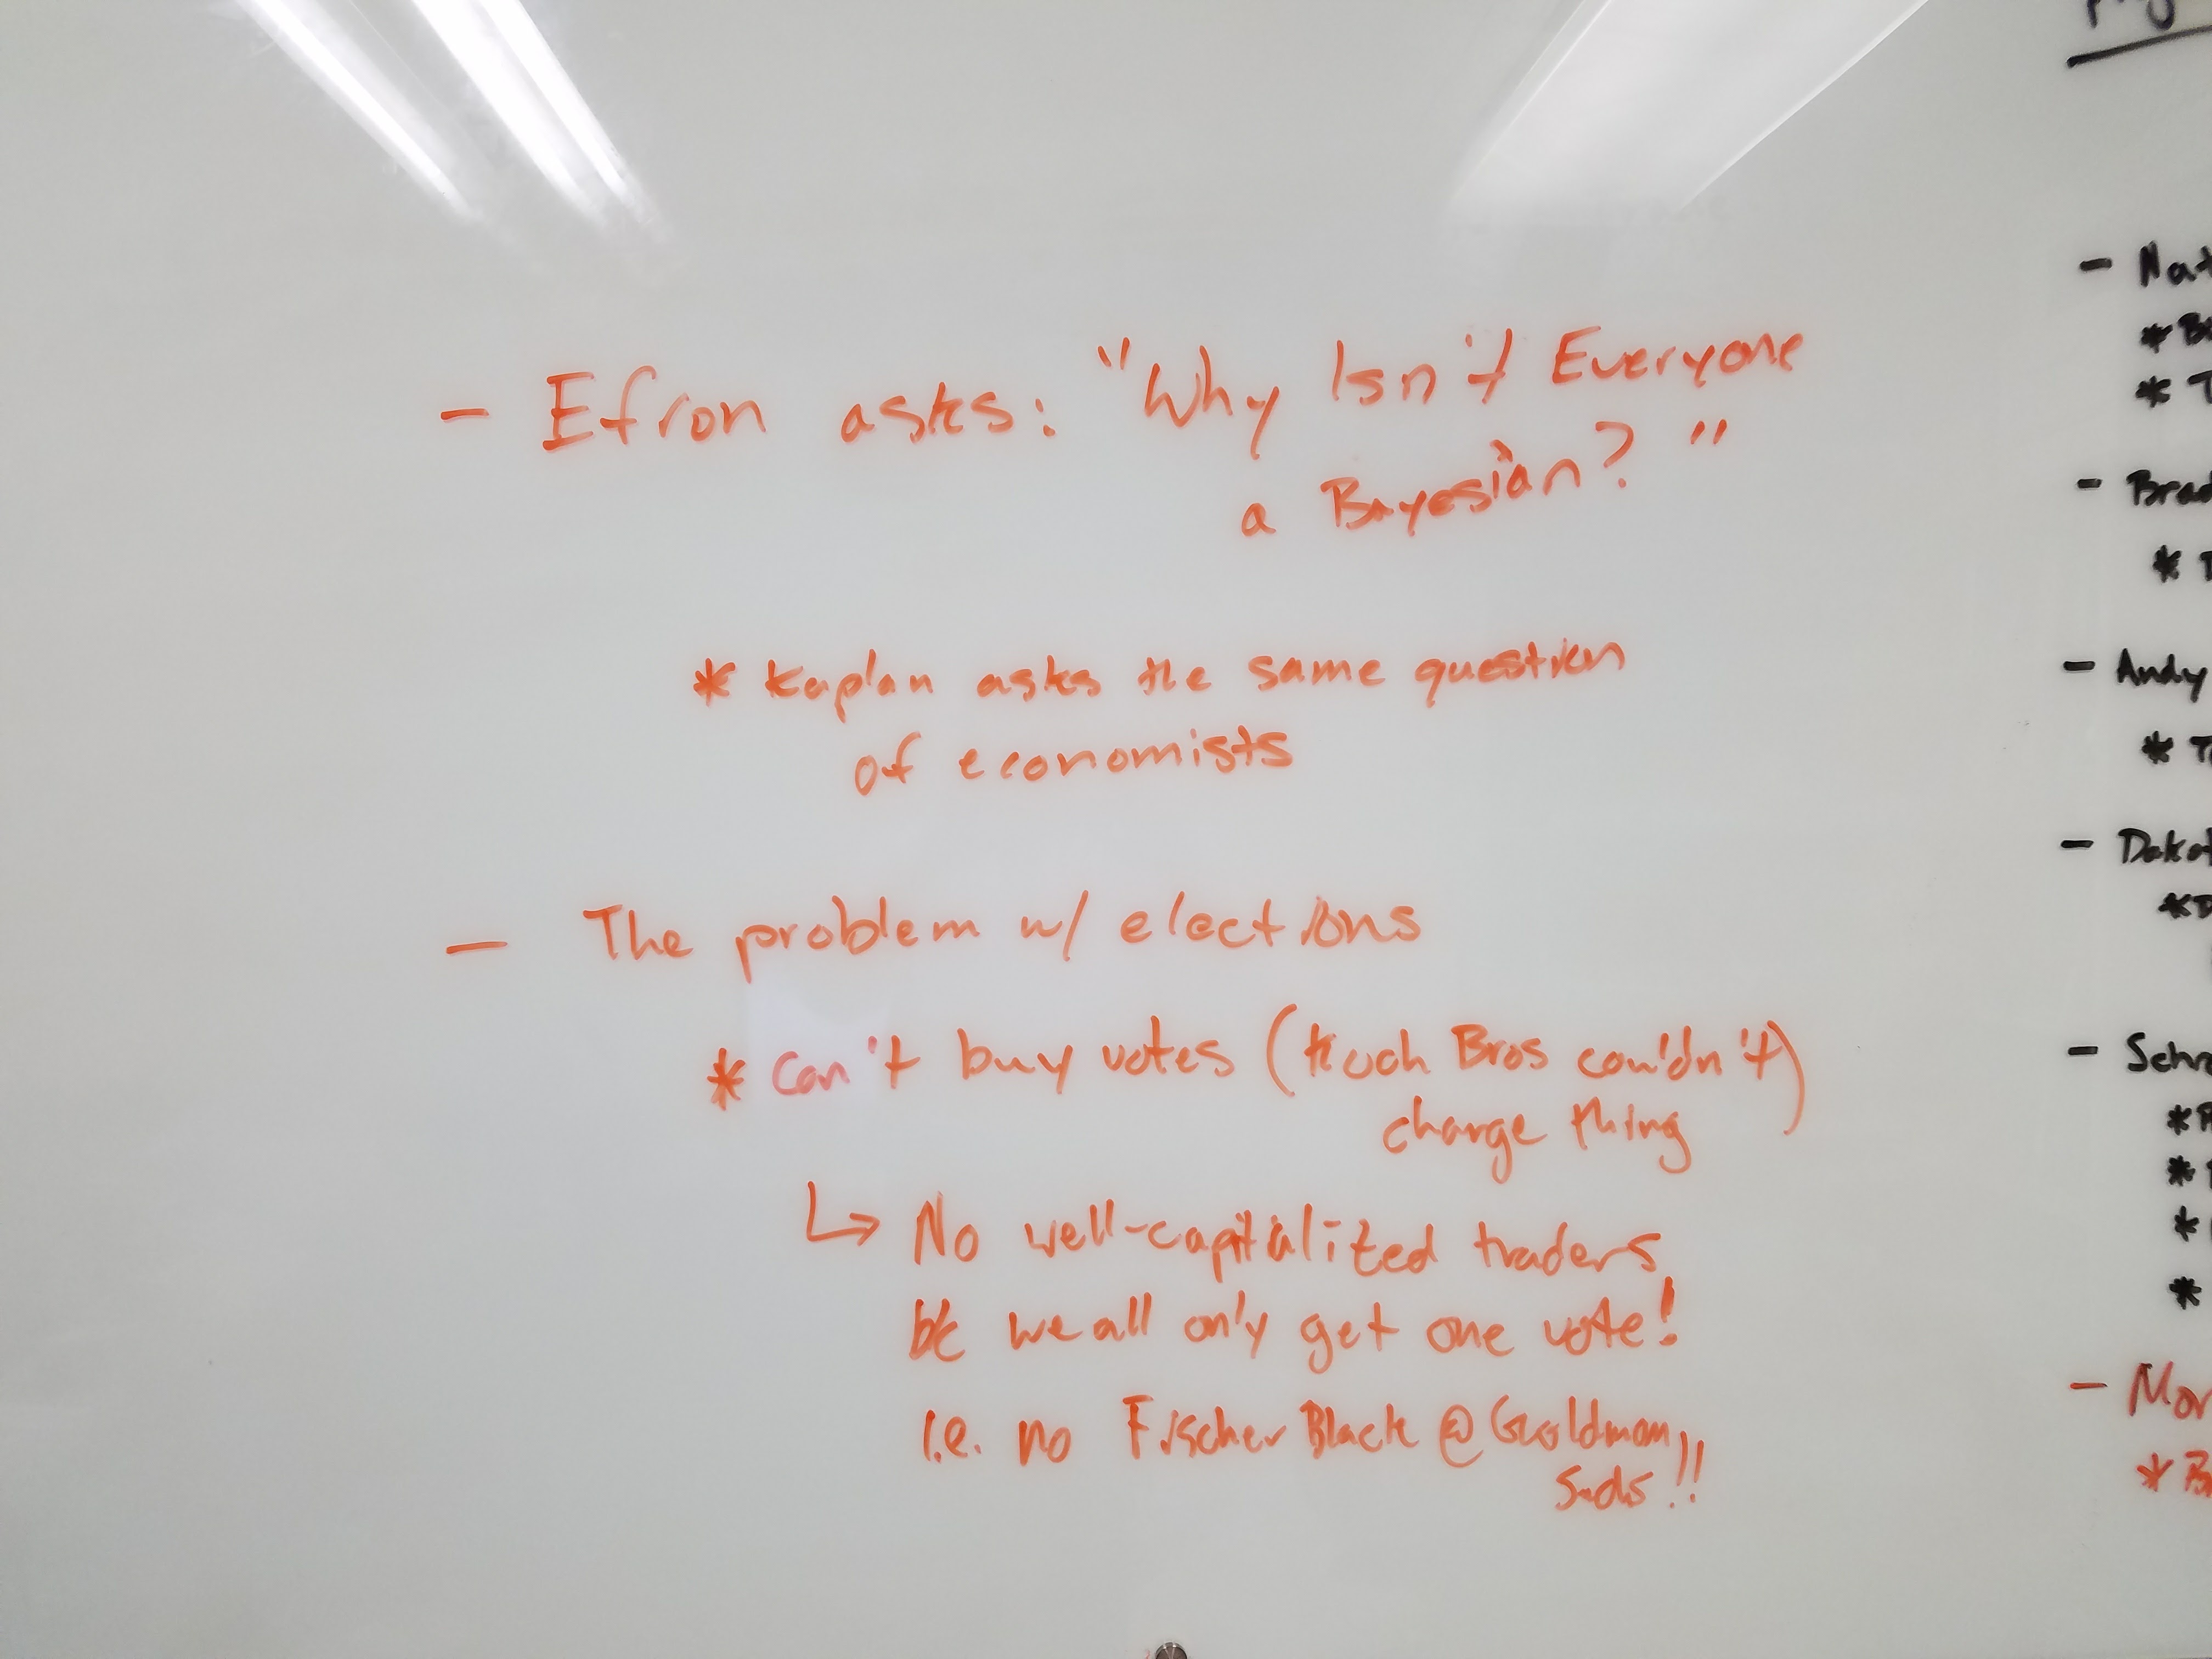 - Efron asks: "Why Isn't Everyone
a Bayesian?"
* Kaplan asks the same question
of economists
- The problem w/ elections
* Can't buy votes (Koch Bros couldn't)
change thing
↳ No well-capitalized traders
b/c we all only get one vote!
i.e. no Fischer Black @ Goldman
Sachs!!
- Nat
* B
* T
- Brad
*
- Andy
* T
- Dakot
* D
- Schr
*
*
*
*
- Mor
* B